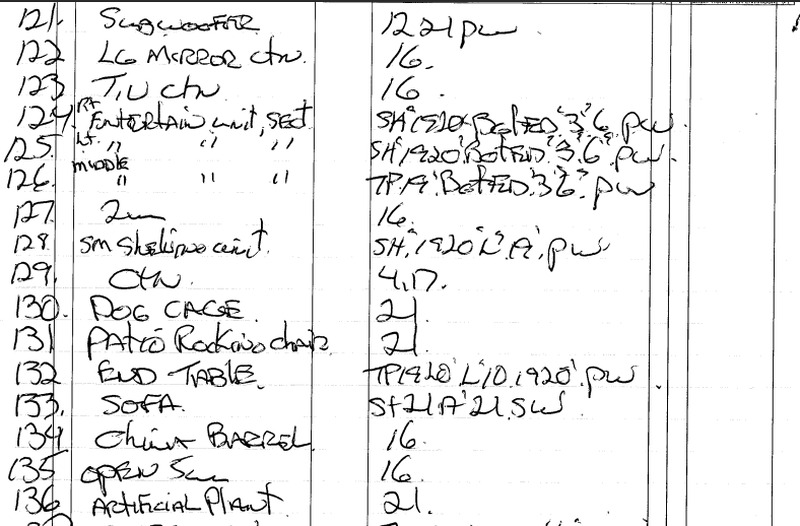 121. SUBWOOFER 12 21 pw
122 LG MIRROR ctn. 16.
123 T.V CTN 16
124. Rt ENTERTAIN unit, sect. SH "1920. Bot ED "3" 6" pw.
125. Lt. " " " SH, 1920" Bot ED. "3" 6" pw.
126. middle " " " TP. 19" Bot ED. "3" 6" pw
127. 16.
128. Sm Shelving unit. SH. 1920" L" A". pw
129. CTN. 4.17.
130. DOG CAGE. 21.
131 PATIO Rocking chair. 21.
132 END TABLE. TP 1920" L "10. 1920" pw.
133. SOFA. 21 A" 21. SW.
134 China BARREL. 16.
135 OPEN 16.
136. ARTIFICIAL Plant 21.